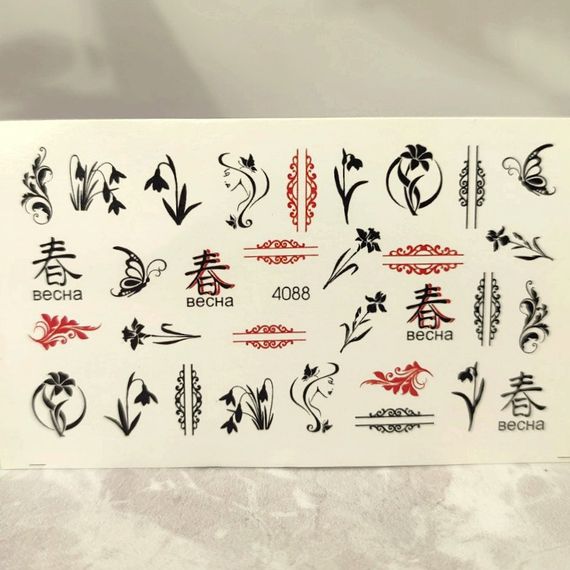 春
весна
春
весна
4088
春
весна
春
весна